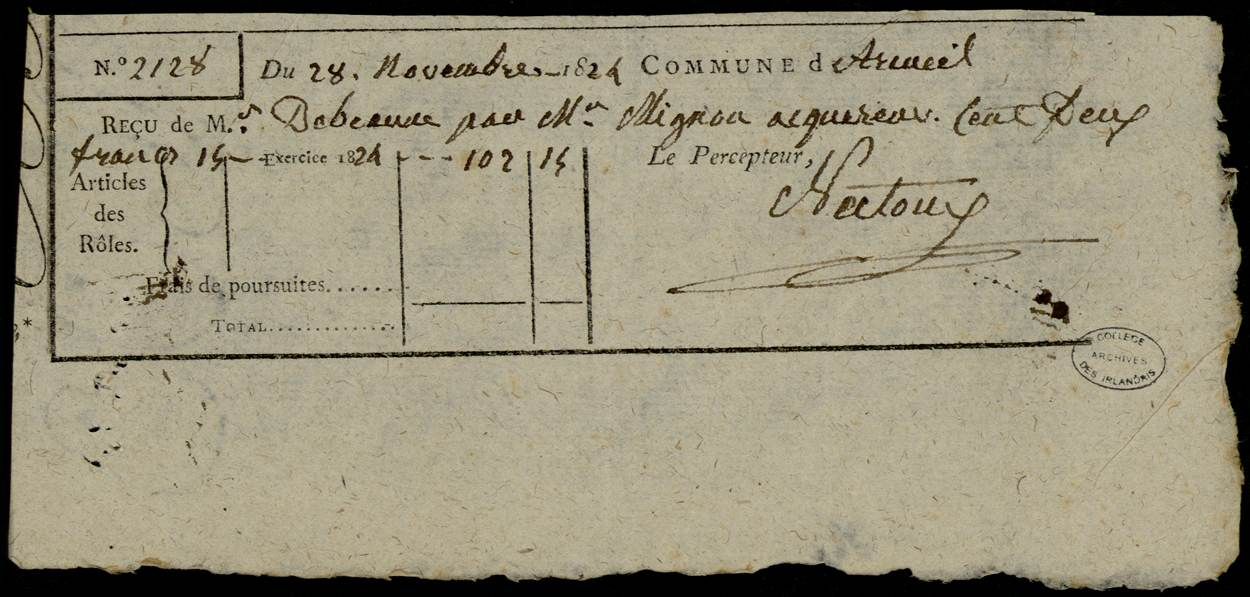 N.º 2128 Du 28. Novembre 1824 COMMUNE d'Arcueil
REÇU de M.r par Mr. Mignon acquereur. Cent Deux
francs 15 Exercice 1824 102 15 Le Percepteur,
Articles
des
Rôles.
Frais de poursuites.......
TOTAL.............
*
COLLEGE
ARCHIVES
DES IRLANDAIS